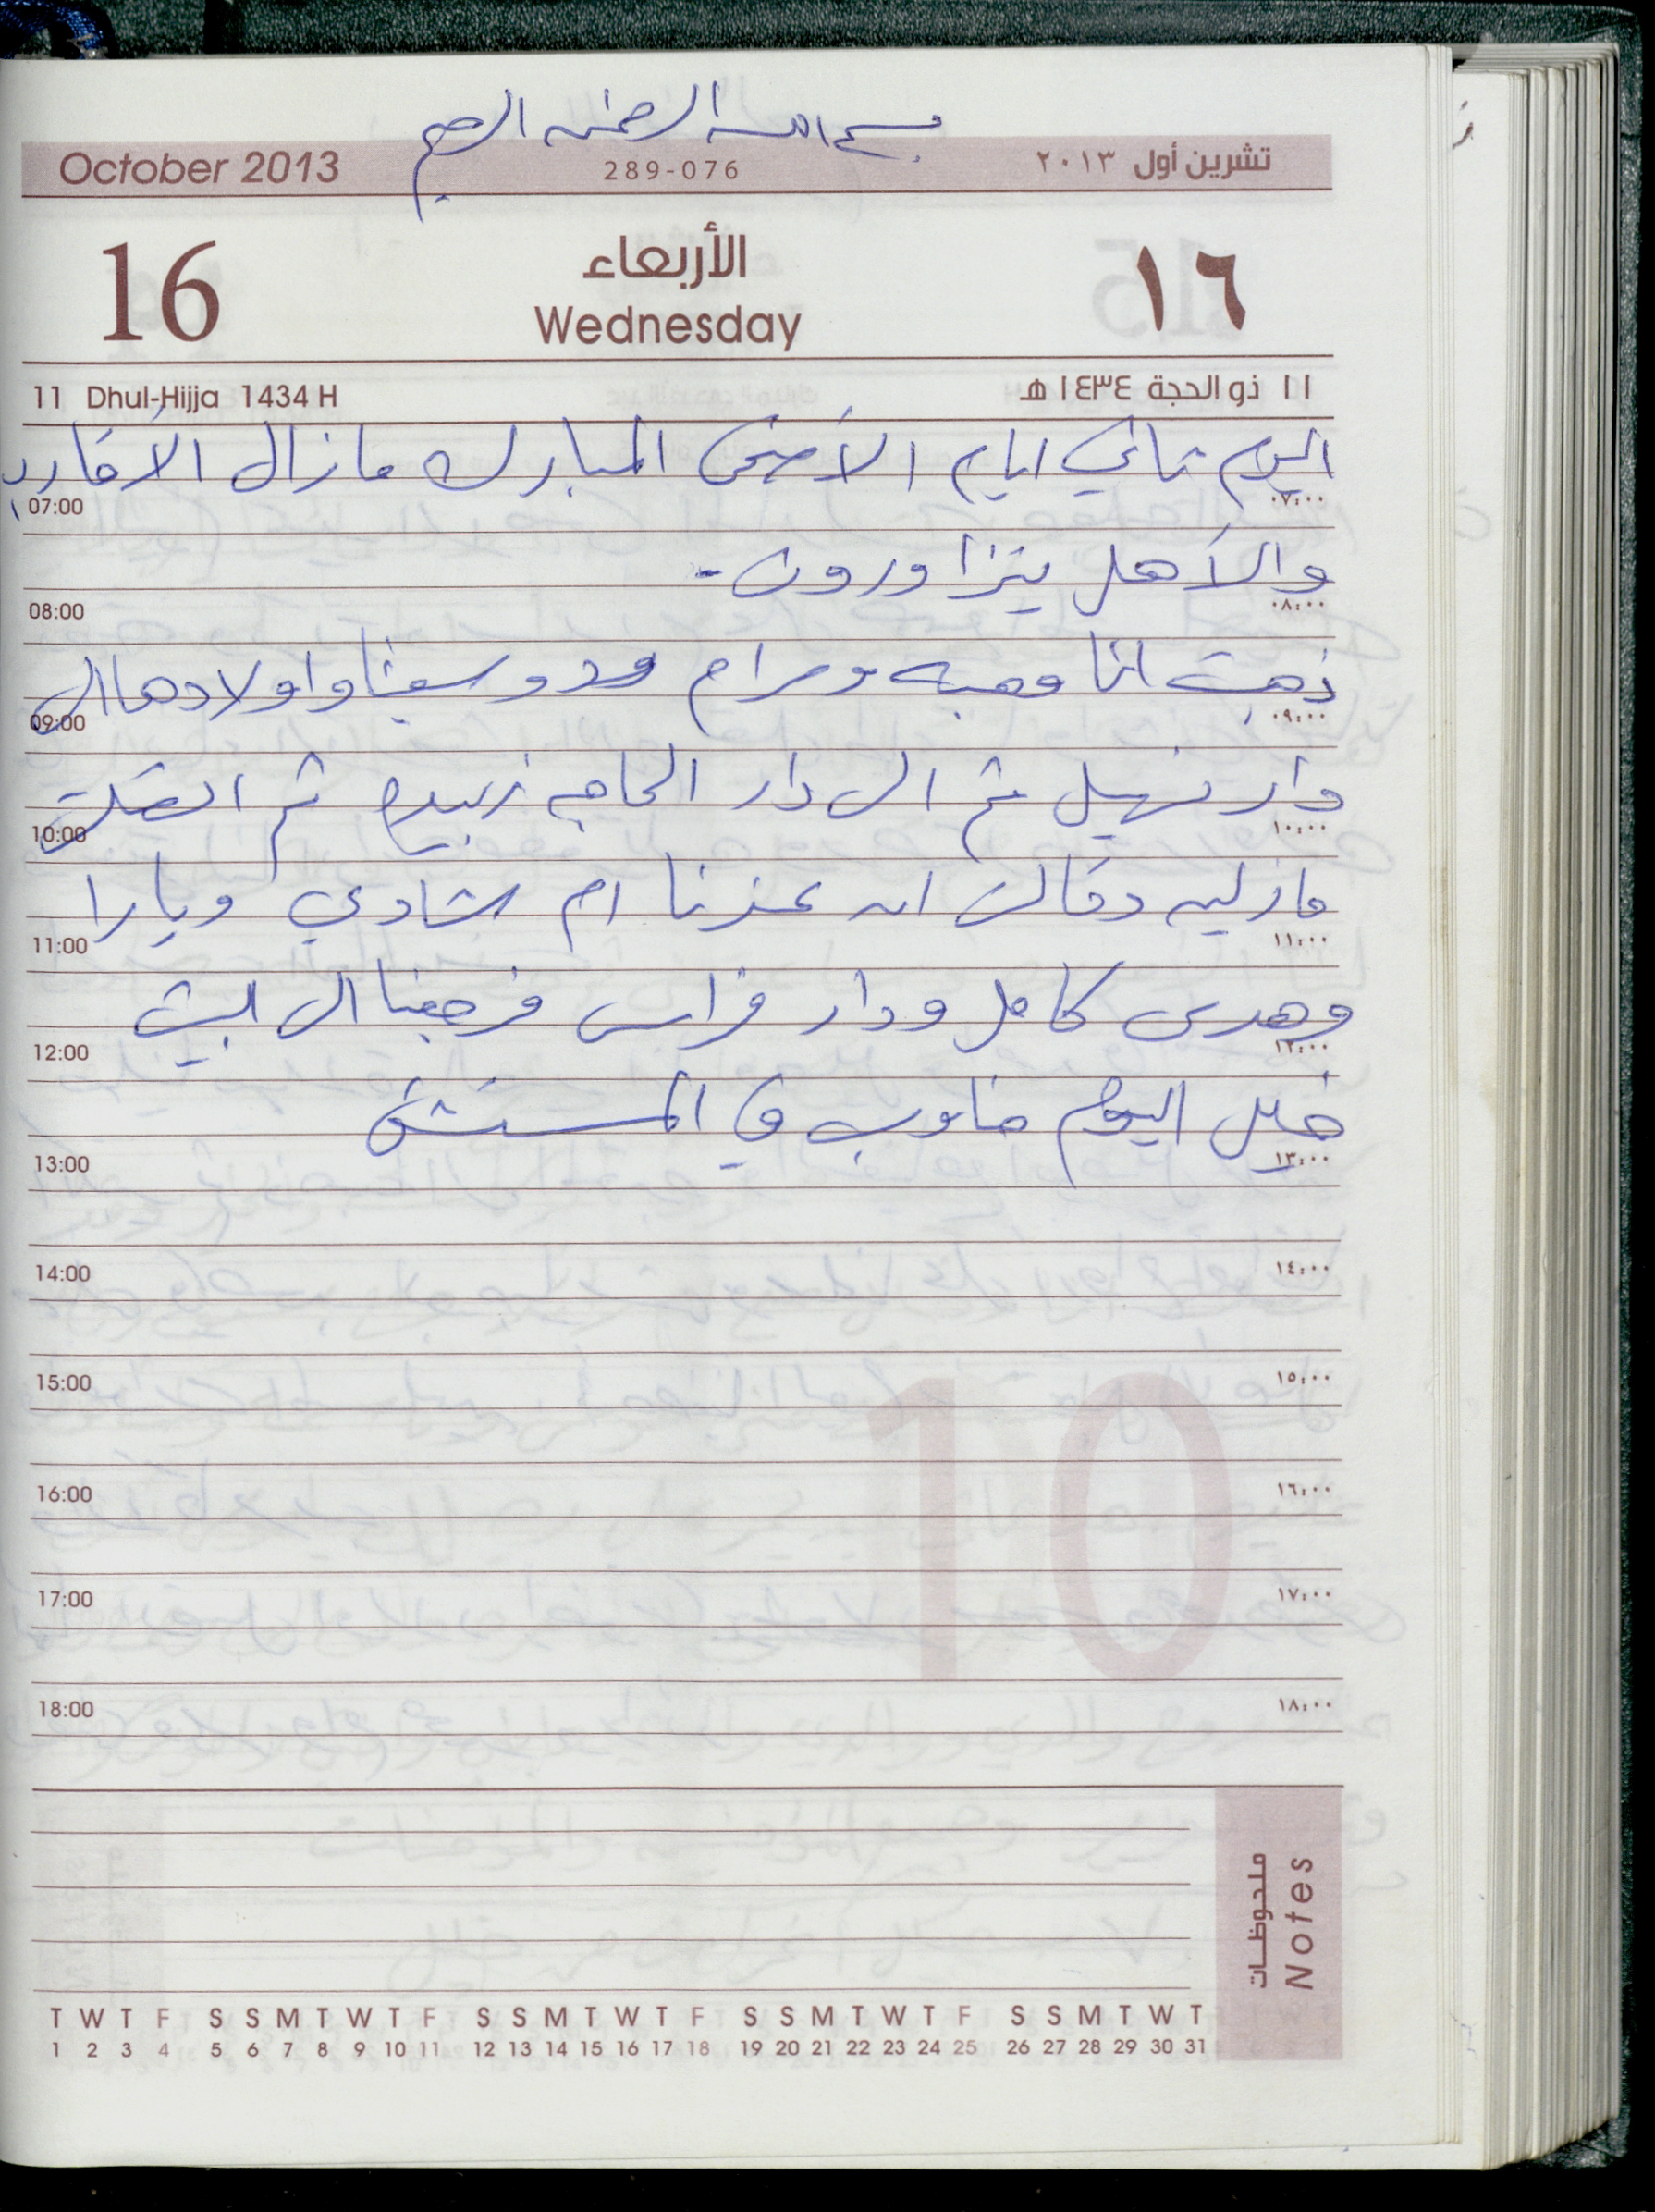 بسم الله الرحمن الرحيم
October 2013 289-076 تشرين أول ٢٠١٣
16 الأربعاء ١٦
Wednesday
11 Dhul-Hijja 1434 H ١١ ذو الحجة ١٤٣٤ هـ
اليوم ثاني ايام الأضحى المبارك مازال الأقارب
07:00 ٠٧:٠٠
والأهل يتزاورون -
08:00 ٠٨:٠٠
ذهبت انا وهبه ومرام واولادها الى
09:00 ٠٩:٠٠
دار نهيل ثم الى دار الحاجه زبيده ثم اتصلت
10:00 ١٠:٠٠
وقالت ان عندنا ام الشادي ويارا
11:00 ١١:٠٠
وهدى كامل ودار فراس فرجعنا الى البيت
12:00 ١٢:٠٠
خليل اليوم مناوب في المستشفى
13:00 ١٣:٠٠
14:00 ١٤:٠٠
15:00 ١٥:٠٠
16:00 ١٦:٠٠
17:00 ١٧:٠٠
18:00 ١٨:٠٠
10
ملحوظات
Notes
T W T F S S M T W T F S S M T W T F S S M T W T F S S M T W T
1 2 3 4 5 6 7 8 9 10 11 12 13 14 15 16 17 18 19 20 21 22 23 24 25 26 27 28 29 30 31